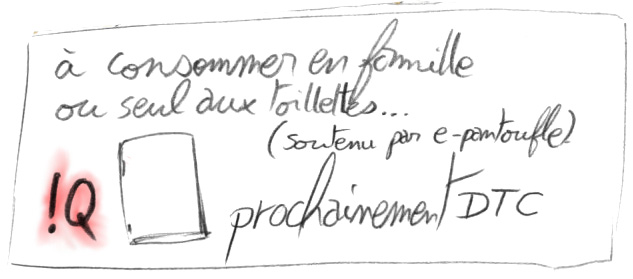 à consommer en famille
ou seul aux toillettes...
(soutenu par e-pantoufle)
!Q
prochainement DTC